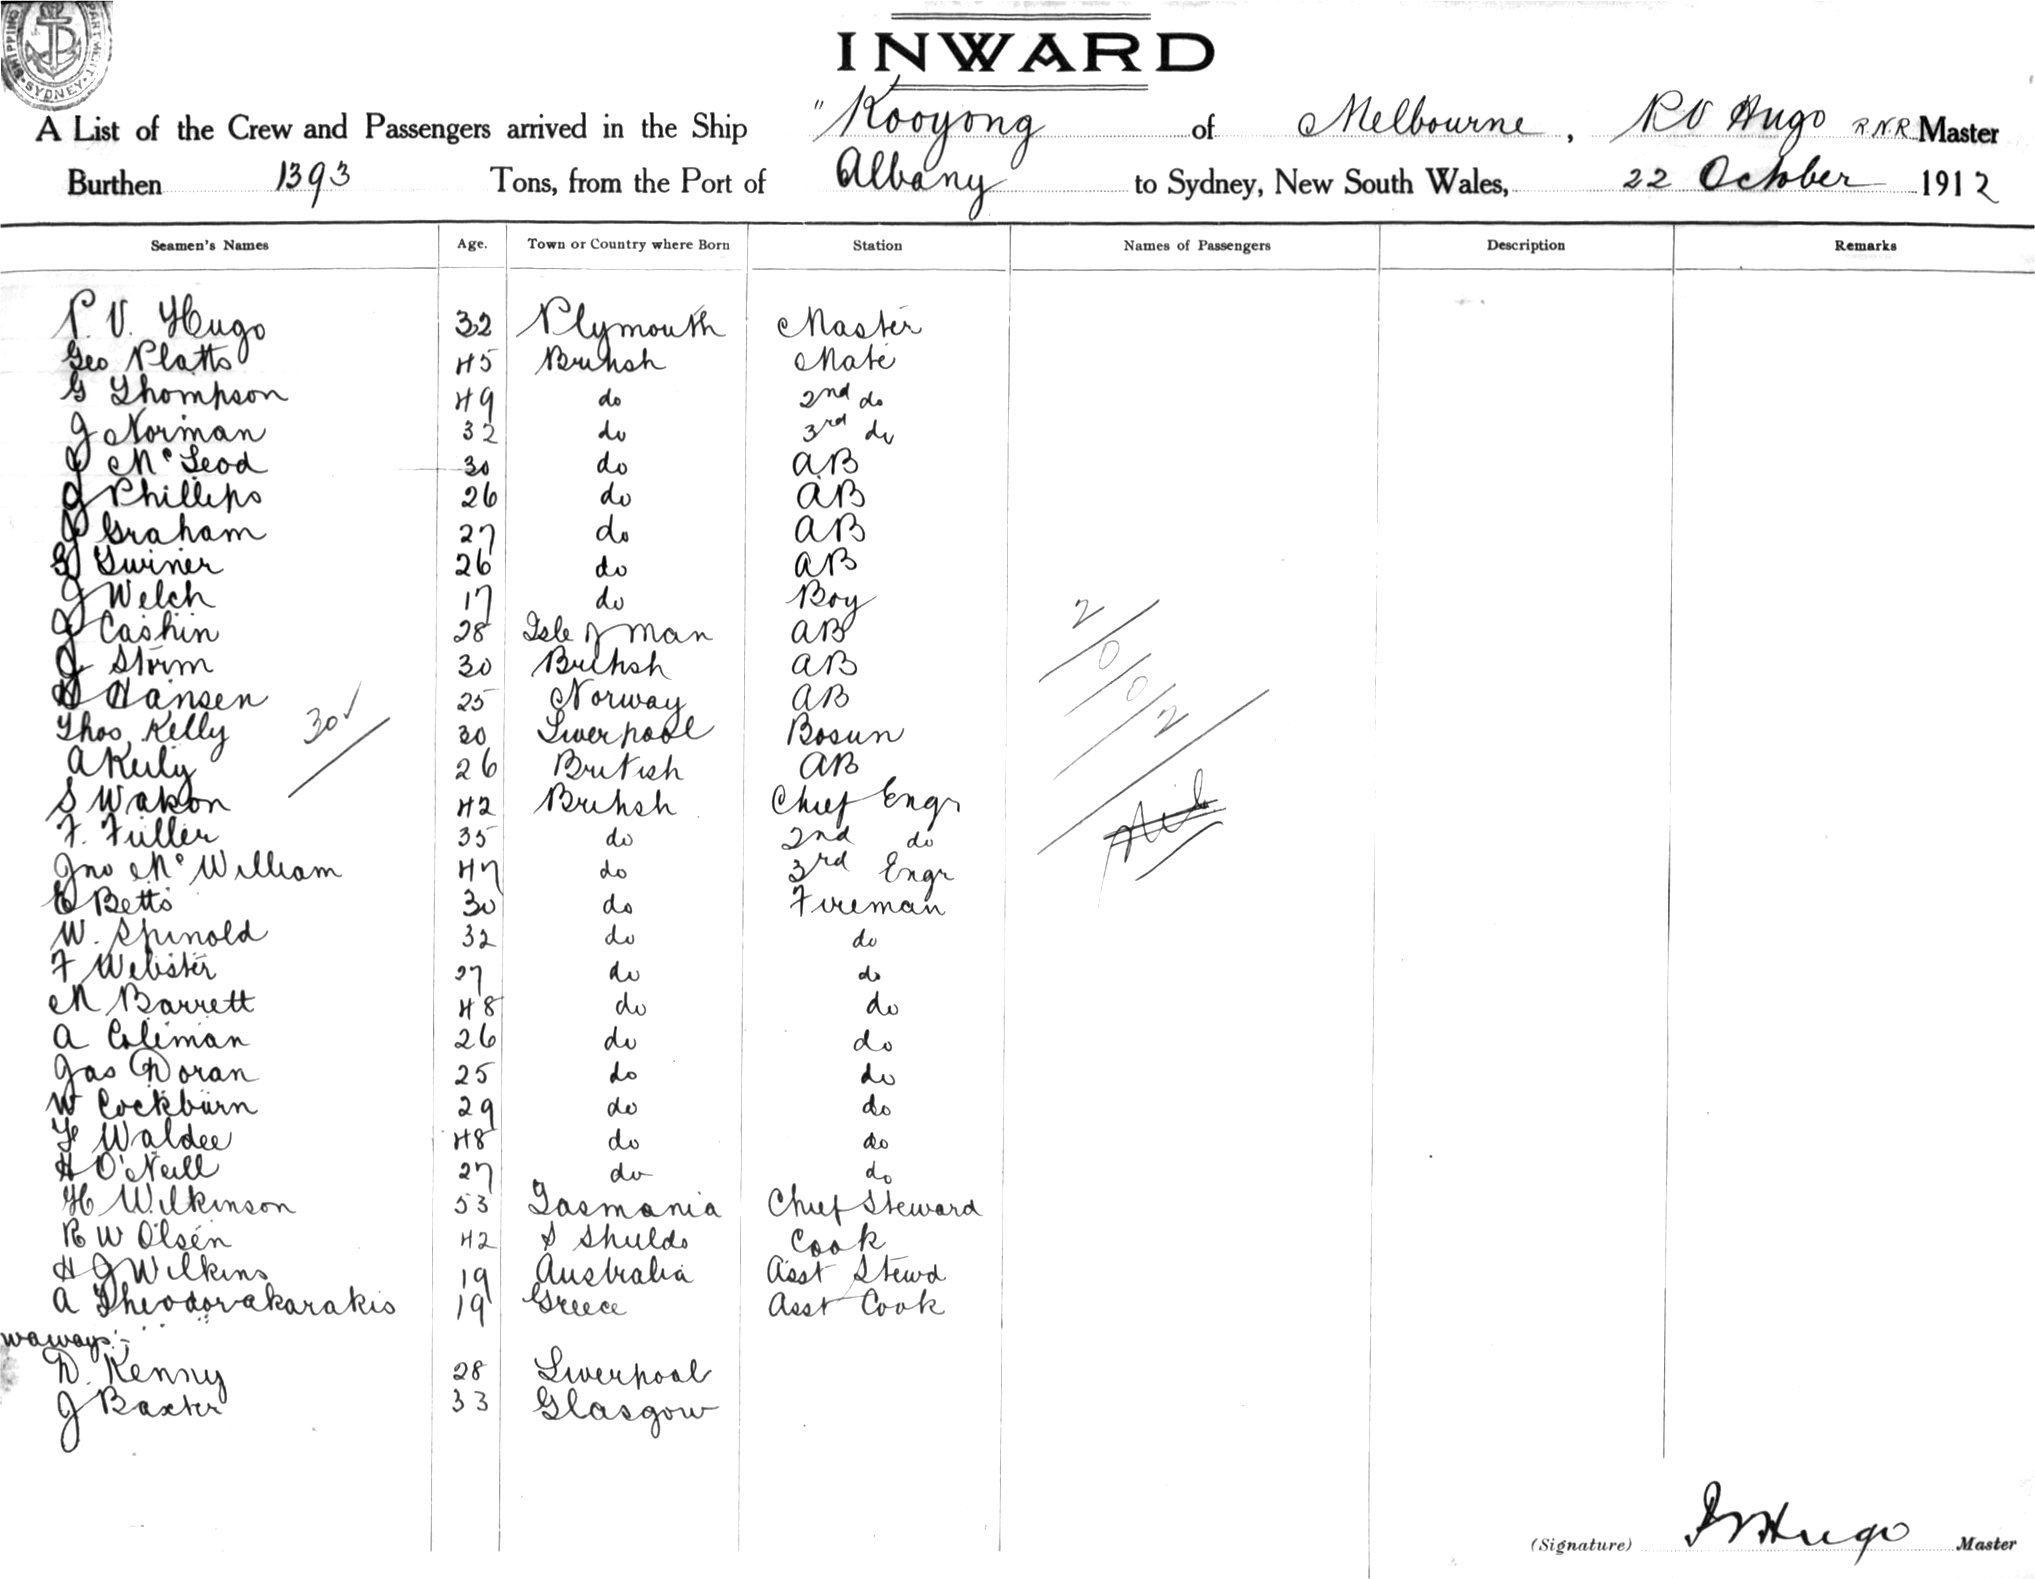 SHIPPING DEPARTMENT SYDNEY
INWARD
A List of the Crew and Passengers arrived in the Ship "Kooyong of Melbourne, RV Hugo R.N.R Master
Burthen 1393 Tons, from the Port of Albany to Sydney, New South Wales, 22 October 1912
Seamen's Names Age. Town or Country where Born Station Names of Passengers Description Remarks
R. V. Hugo 32 Plymouth Master
Geo Platts 45 British Mate
G Thompson 49 do 2nd do
J Norman 32 do 3rd do
J McLeod 30 do AB
J Phillips 26 do AB
J Graham 27 do AB
26 do AB
J Welch 17 do Boy
J Cashin 28 Isle of Man AB
J Storm 30 British AB
H Hansen 25 Norway AB
Thos. Kelly 30 Liverpool Bosun
30✓
2/0/0/2
A Keily 26 British AB
S 42 British Chief Engr
Nil
F. Fuller 35 do 2nd do
Jno McWilliam 47 do 3rd Engr
E Betts 30 do Fireman
W. Spinold 32 do do
F Webster 27 do do
M Barrett 48 do do
A Coleman 26 do do
Jas Doran 25 do do
W Cockburn 29 do do
F Waldee 48 do do
H O'Neill 27 do do
H Wilkinson 53 Tasmania Chief Steward
R W Olsen 42 S Shields Cook
H J Wilkins 19 Australia Asst Stewd
A Theodorakarakis 19 Greece Asst Cook
waways:-
D. Kenny 28 Liverpool
J Baxter 33 Glasgow
(Signature) RVHugo Master